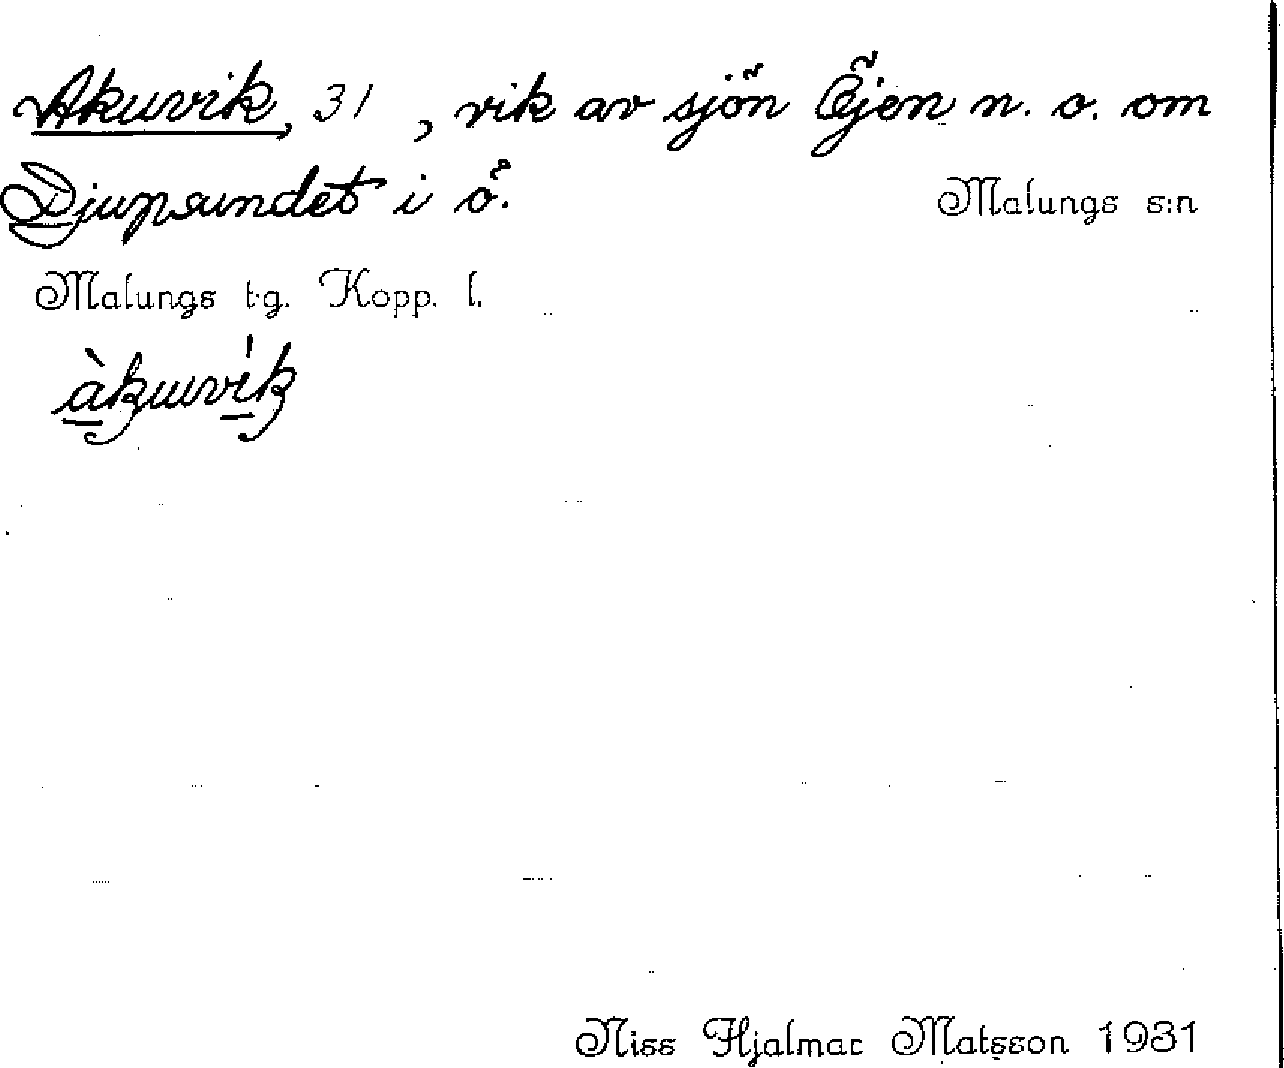 Akuvik, 31, vik av sjön Öjen n. o. om
Djupsundet i ö. Malungs s:n
Malungs tg. Kopp. l.
àkuvik
Niss Hjalmar Matsson 1931